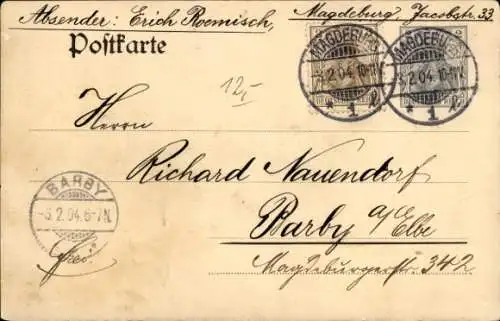 Absender: Erich Roemisch, Magdeburg, Jacobstr. 33.
Postkarte
MAGDEBURG
3.2.04.10-11V.
* 1 l.
MAGDEBURG
3.2.04.10-11V.
* 1 l.
2
12,-
Herrn
Richard Nauendorf
Barby a/Elbe
Magdeburgerstr. 342.
BARBY
-3.2.04.6-7N.